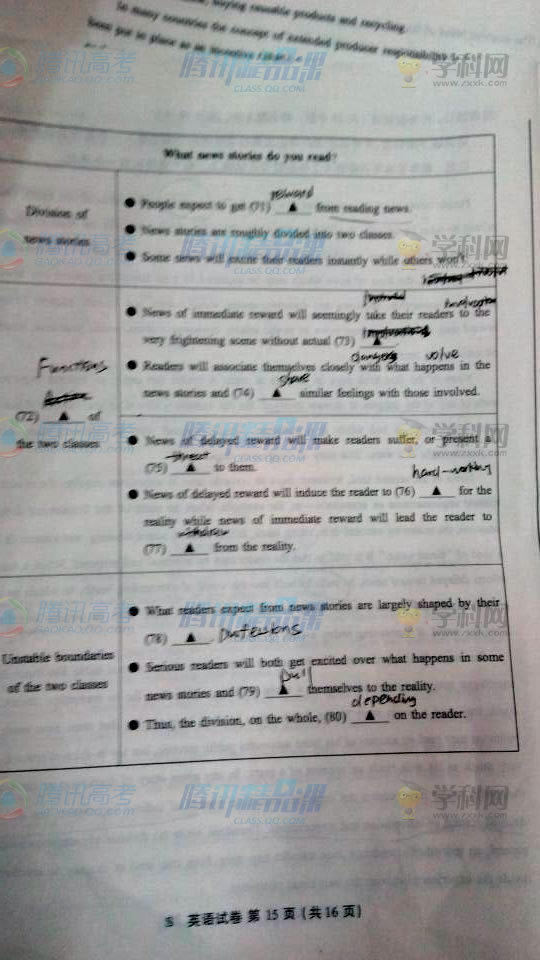 buying reusable products and recycling.
So many countries the concept of extended producer responsibility
been put in place as an incentive
腾讯高考
GAOKAO.QQ.COM
腾讯精品课
CLASS.QQ.COM
学科网
www.zxxk.com
What news stories do you read?
Division of
news stories
reward
● People expect to get (71) ▲ from reading news.
● News stories are roughly divided into two classes.
● Some news will excite their readers instantly while others won't.
Functions
(72) ▲ of
the two classes
● News of immediate reward will seemingly take their readers to the
very frightening scene without actual (73) ▲
volve
● Readers will associate themselves closely with what happens in the
share
news stories and (74) ▲ similar feelings with those involved.
● News of delayed reward will make readers suffer, or present a
threat
(75) ▲ to them.
hard-working
● News of delayed reward will induce the reader to (76) ▲ for the
reality while news of immediate reward will lead the reader to
withdraw
(77) ▲ from the reality.
Unstable boundaries
of the two classes
● What readers expect from news stories are largely shaped by their
(78) ▲
● Serious readers will both get excited over what happens in some
pull
news stories and (79) ▲ themselves to the reality.
depending
● Thus, the division, on the whole, (80) ▲ on the reader.
腾讯高考
GAOKAO.QQ.COM
腾讯精品课
CLASS.QQ.COM
学科网
www.zxxk.com
S 英语试卷 第 15 页 (共 16 页)